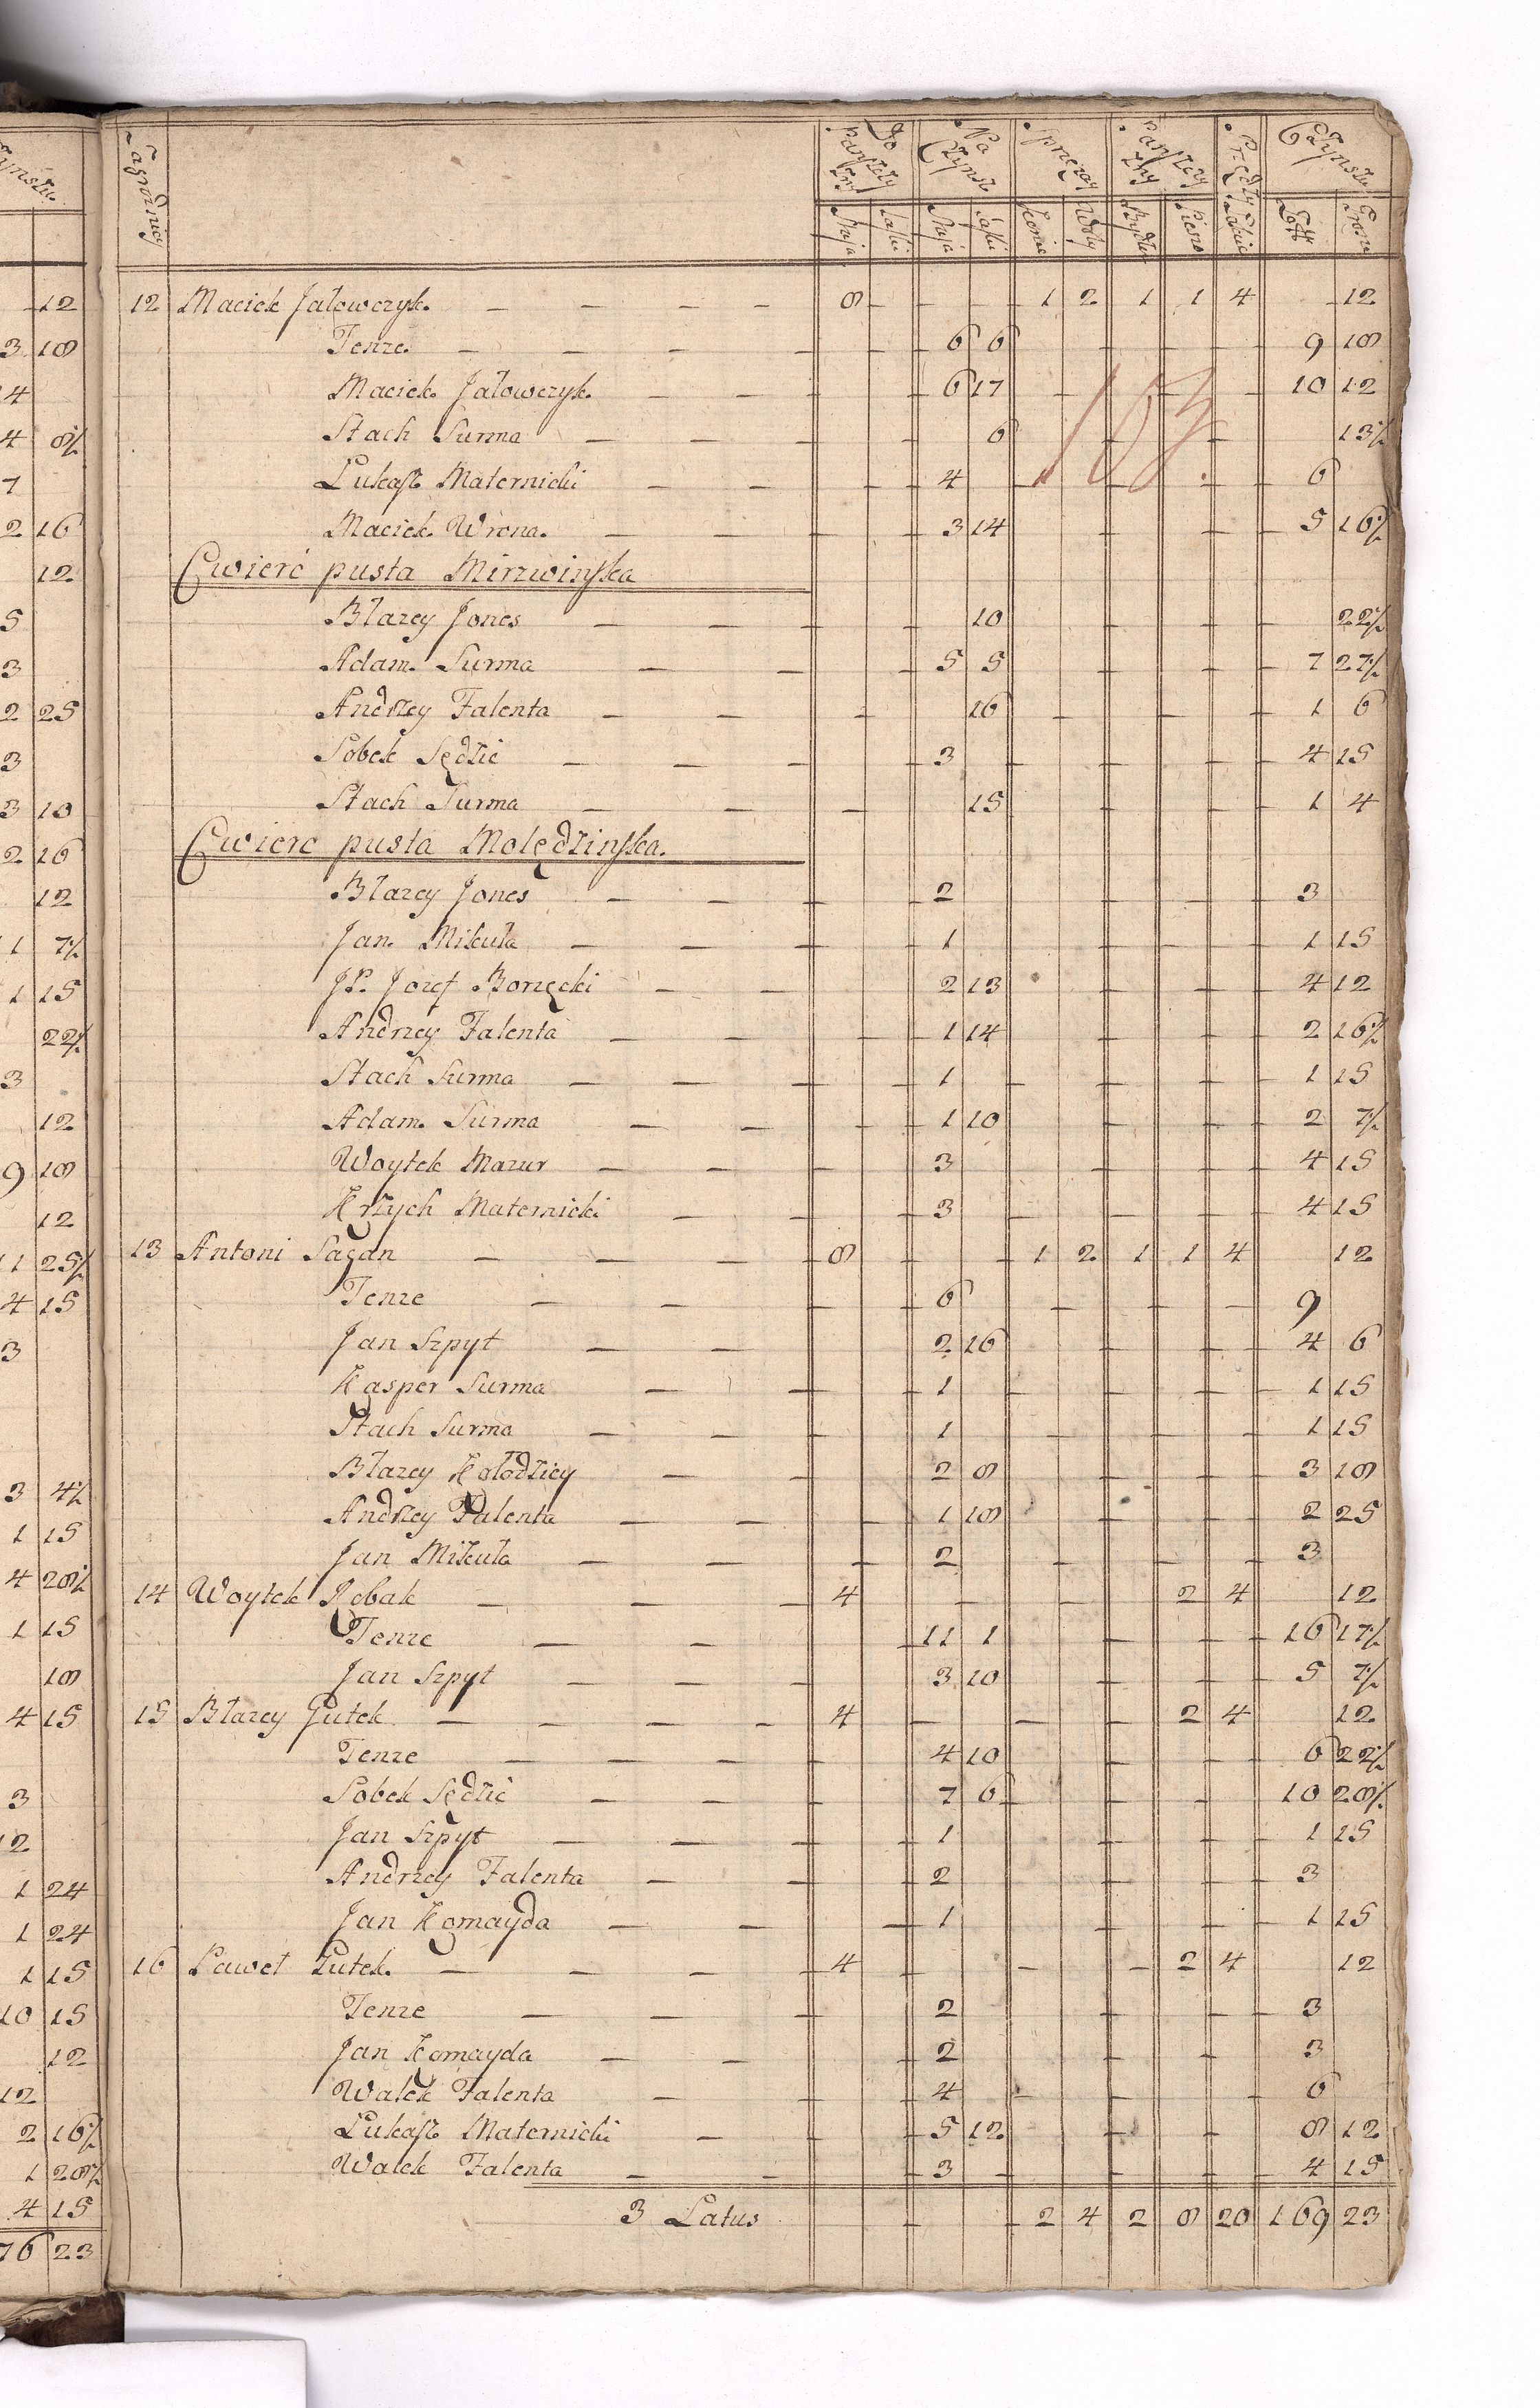 Zagrodnicy | Do pańszczyzny | Na Czynsz | Sprzężay | Pańszczyzny | Przędzy | Czynszu
Staja | Laski | Staja | Laski | Konie | Woły | Bydłem | Pieszo | Łokcie | Zołł | Grosze
12 Maciek Jałowczyk. — — — 8 — — — 1 2 1 1 4 — 12
Tenze. — — — 6 6 9 18
Maciek Jałowczyk. — — 6 17 10 12
Stach Surma — — 6 13½
163.
Łukasz Maternicki — — 4 6
Maciek Wrona. — — 3 14 5 16½
Cwierć pusta Mirzwińska
Błazey Jones — — 10 22½
Adam Surma — — 5 5 7 27½
Andrzey Falenta — — 16 1 6
Sobek Sędzic — — — 3 4 15
Stach Surma — — 15 1 4
Cwierc pusta Molędzińska.
Błazey Jones — — 2 3
Jan Mikuła — — 1 1 15
JP. Jozef Borzęcki — — 2 13 4 12
Andrzey Falenta — — 1 14 2 16½
Stach Surma — — 1 1 15
Adam Surma — — 1 10 2 7½
Woytek Mazur — — 3 4 15
Krzych Maternicki — — 3 4 15
13 Antoni Sagan — — — 8 1 2 1 1 4 12
Tenze — — 6 9
Jan Szpyt — — 2 16 4 6
Kasper Surma — — 1 1 15
Stach Surma — — 1 1 15
Błazey Kołodziey — — 2 8 3 18
Andrzey Falenta — — 1 18 2 25
Jan Mikuła — — 2 3
14 Woytek Robak — — — 4 2 4 12
Tenze — — 11 1 16 17½
Jan Szpyt — — 3 10 5 7½
15 Błazey Gutek — — — — 4 2 4 12
Tenze — — — 4 10 6 22½
Sobek Sędzic — — 7 6 10 28½
Jan Szpyt — — — 1 1 15
Andrzey Falenta — — 2 3
Jan Komayda — — 1 1 15
16 Paweł Gutek. — — — 4 2 4 12
Tenze — — 2 3
Jan Komayda — — 2 3
Walek Falenta — — 4 6
Łukasz Maternicki — 5 12 8 12
Walek Falenta — — 3 4 15
3 Latus 2 4 2 8 20 169 23